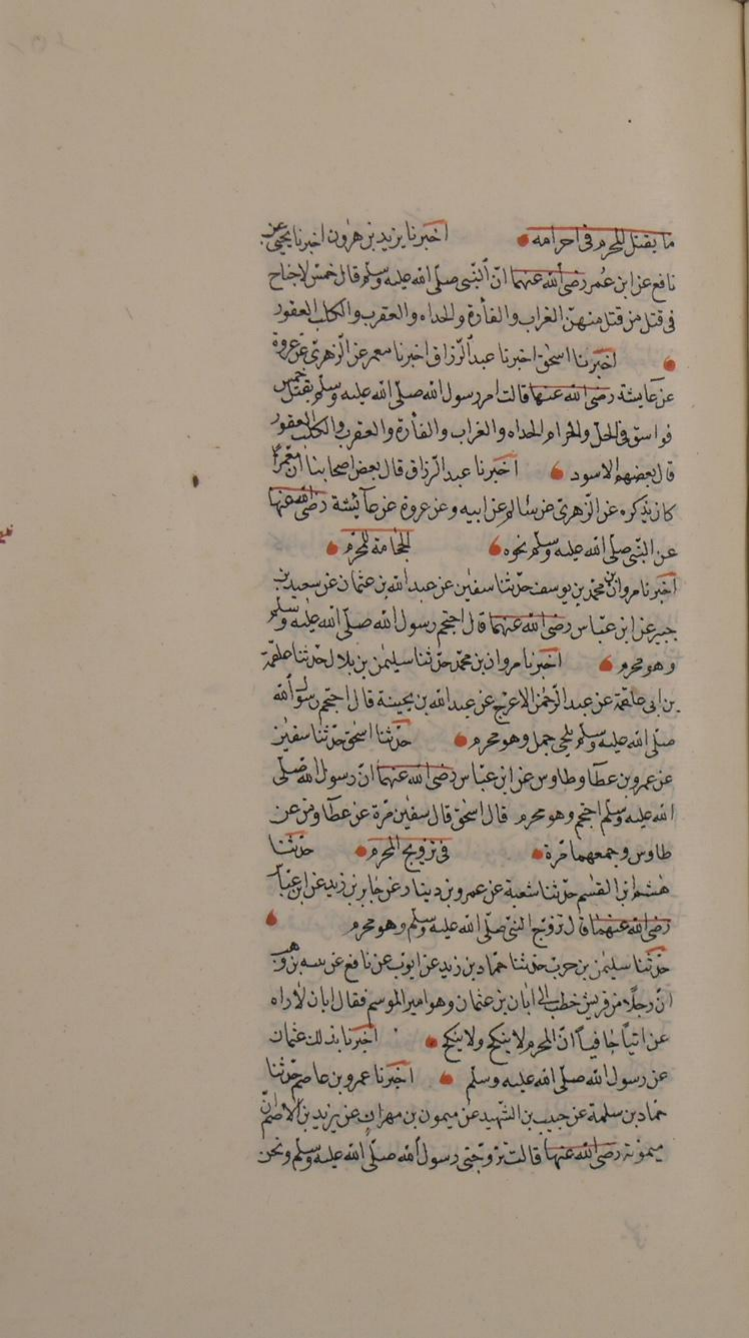 ما يقتل المحرم فى احرامه اخبرنا يزيد بن هرون اخبرنا يحيى عن
نافع عن ابن عمر رضى الله عنهما انّ النّبى صلّى الله عليه وسلم قال خمس لاجناح
فى قتل من قتل منهنّ الغراب والفأرة والحداه والعقرب والكلب العقور
اخبرنا اسحٰق اخبرنا عبد الرّزاق اخبرنا معمر عن الزّهرىّ عن عروة
عن عايشة رضى الله عنها قالت امر رسول الله صلّى الله عليه وسلم بقتل خمس
فواسق فى الحلّ والحرام الحداه والغراب والفأرة والعقرب والكلب العقور
قال بعضهم الاسود اخبرنا عبد الرّزاق قال بعض اصحابنا ان معمرًا
كان يذكره عن الزّهرىّ عن سالم عن ابيه وعن عروة عن عآيشة رضى الله عنها
عن النّبى صلّى الله عليه وسلم نحوه الحجامة للمحرم
اخبرنا مروان بن محمّد بن يوسف حدّثنا سفيٰن عن عبد الله بن عثمان عن سعيد بن
جبير عن ابن عبّاس رضى الله عنهما قال احتجم رسول الله صلّى الله عليه وسلم
وهو محرم اخبرنا مروان بن محمّد حدّثنا سليمٰن بن بلال حدّثنا علقمة
بن ابى علقمة عن عبد الرّحمٰن الاعرج عن عبد الله بن بحينة قال احتجم رسول الله
صلّى الله عليه وسلم بلحى جمل وهو محرم حدّثنا اسحٰق حدّثنا سفيٰن
عن عمرو بن عطآ وطاوس عن ابن عبّاس رضى الله عنهما انّ رسول الله صلّى
الله عليه وسلم احتجم وهو محرم قال اسحٰق قال سفيٰن مّرة عن عطآ ومّر عن
طاوس وجمعهما مّرة فى تزويج المحرم حدّثنا
هشم بن القسٰم حدّثنا شعبة عن عمرو بن دينار عن جابر بن زيد عن ابن عبّاس
رضى الله عنهما قال تزوّج النّبى صلّى الله عليه وسلم وهو محرم
حدّثنا سليمٰن بن حرب حدّثنا حمّاد بن زيد عن ايوب عن نافع عن نبيه بن وهب
انّ رجلًا من قريش خطب الى ابان بن عثمان وهو امير الموسم فقال ابان لا اراه
عراقيّاً جافيـاً انّ المحرم لا ينكح ولا ينكح اخبرنا بذلك عثمان
عن رسول الله صلّى الله عليه وسلم اخبرنا عمرو بن عاصم حدّثنا
حمّاد بن سلمة عن حبيب بن الشّهيد عن ميمون بن مهران عن يزيد بن الاصمّ انّ
ميمونة رضى الله عنها قالت تزوّجنى رسول الله صلّى الله عليه وسلم ونحن